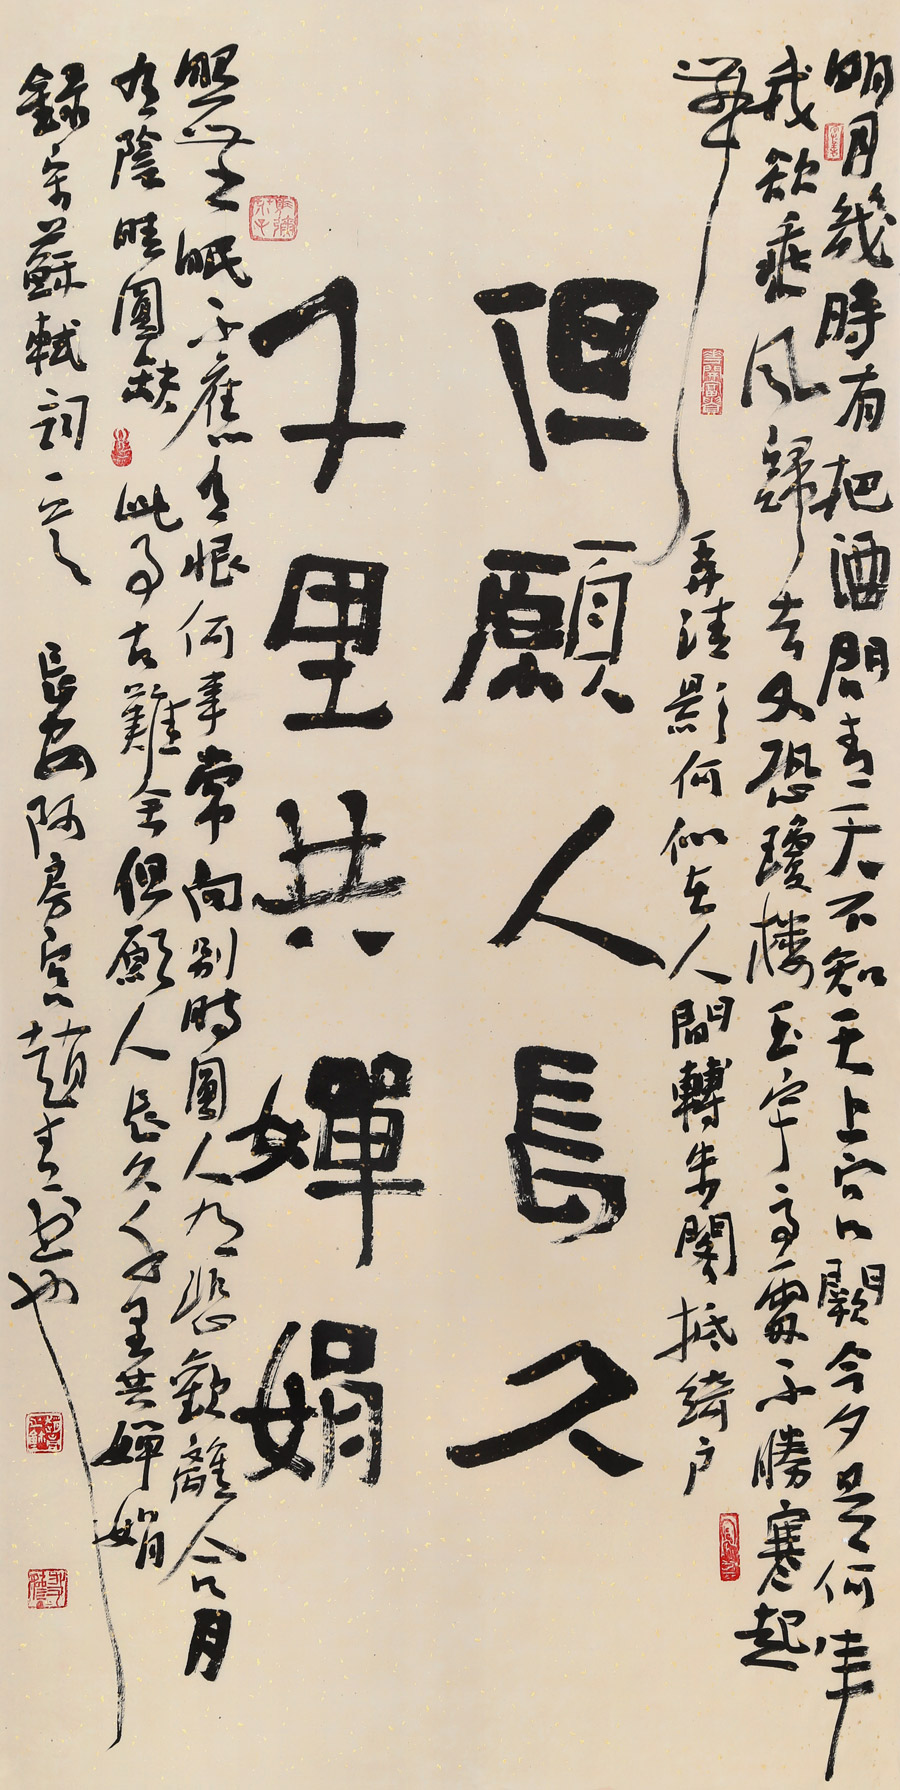 明月幾時有把酒問青天不知天上宮闕今夕是何年
我欲乘風歸去又恐瓊樓玉宇高處不勝寒起
舞弄清影何似在人間轉朱閣抵綺戶
但願人長久
千里共嬋娟
照無眠不應有恨何事常向別時圓人有悲歡離合月
有陰晴圓缺此事古難全但願人長久千里共嬋娟
錄宋蘇軾詞一首 長安阿房宮趙青書也